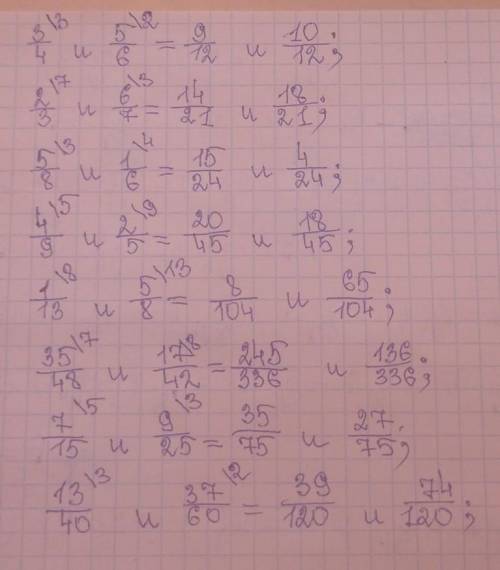 3/4 \3 и 5/6 \2 = 9/12 и 10/12;
2/3 \7 и 6/7 \3 = 14/21 и 18/21;
5/8 \3 и 1/6 \4 = 15/24 и 4/24;
4/9 \5 и 2/5 \9 = 20/45 и 18/45;
1/13 \8 и 5/8 \13 = 8/104 и 65/104;
35/48 \7 и 17/42 \8 = 245/336 и 136/336;
7/15 \5 и 9/25 \3 = 35/75 и 27/75;
13/40 \3 и 37/60 \2 = 39/120 и 74/120;